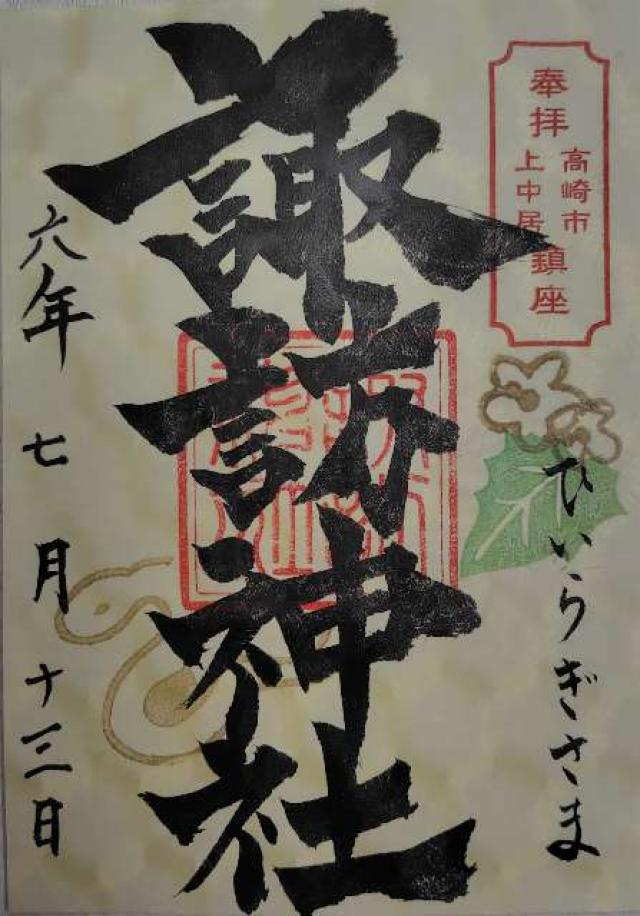 奉拝
高崎市
上中居
鎮座
ひいらぎさま
諏訪神社
六年
七月十三日